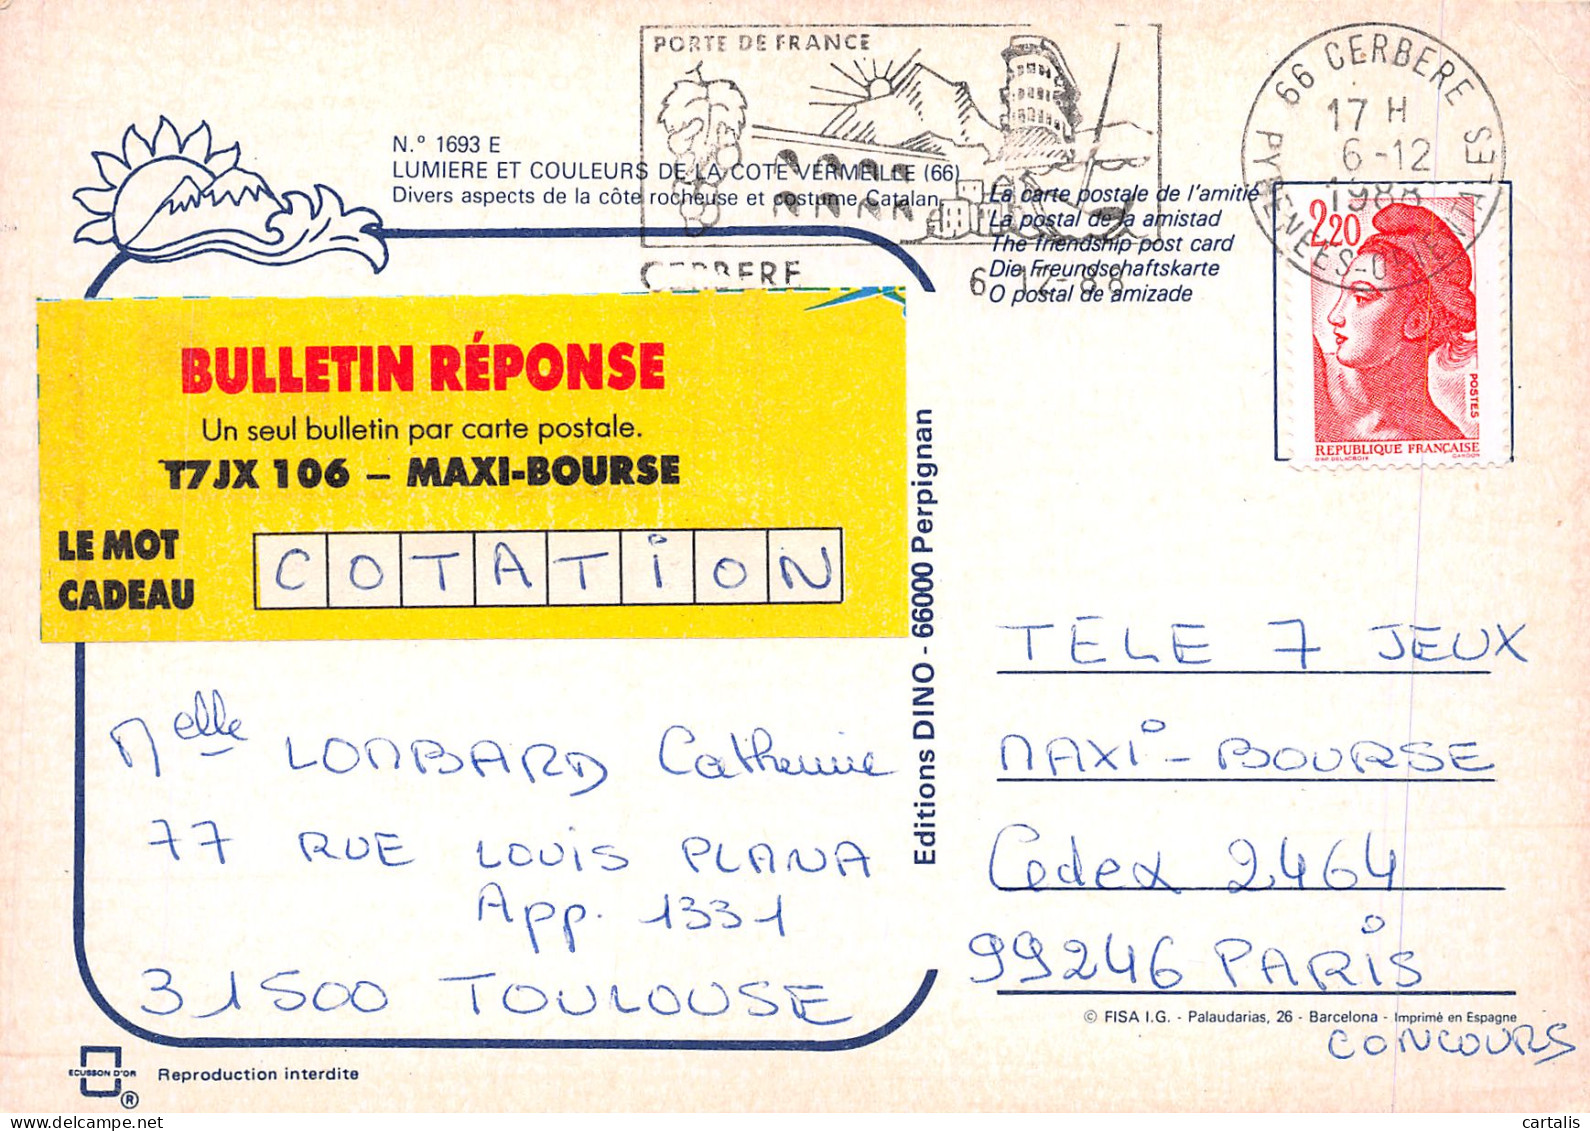 PORTE DE FRANCE
66 CERBERE
17 H
6-12
1988
PYRENEES-ORIENTALES
N.º 1693 E
LUMIERE ET COULEURS DE LA COTE VERMEILLE (66)
Divers aspects de la côte rocheuse et costume Catalan.
La carte postale de l'amitié
La postal de la amistad
The friendship post card
Die Freundschaftskarte
O postal de amizade
CERBERE
6-12-88
2,20
POSTES
REPUBLIQUE FRANÇAISE
D'AP. DELACROIX GANDON
BULLETIN RÉPONSE
Un seul bulletin par carte postale.
T7JX 106 – MAXI-BOURSE
LE MOT
CADEAU
COTATiON
Editions DINO - 66000 Perpignan
Melle LOMBARD Catherine
77 RUE LOUIS PLANA
App. 1331
31500 TOULOUSE
TELE 7 JEUX
MAXi-BOURSE
Cedex 2464
99246 PARiS
© FISA I.G. - Palaudarias, 26 - Barcelona - Imprimé en Espagne
CONCOURS
ECUSSON D'OR
®
Reproduction interdite
cartalis